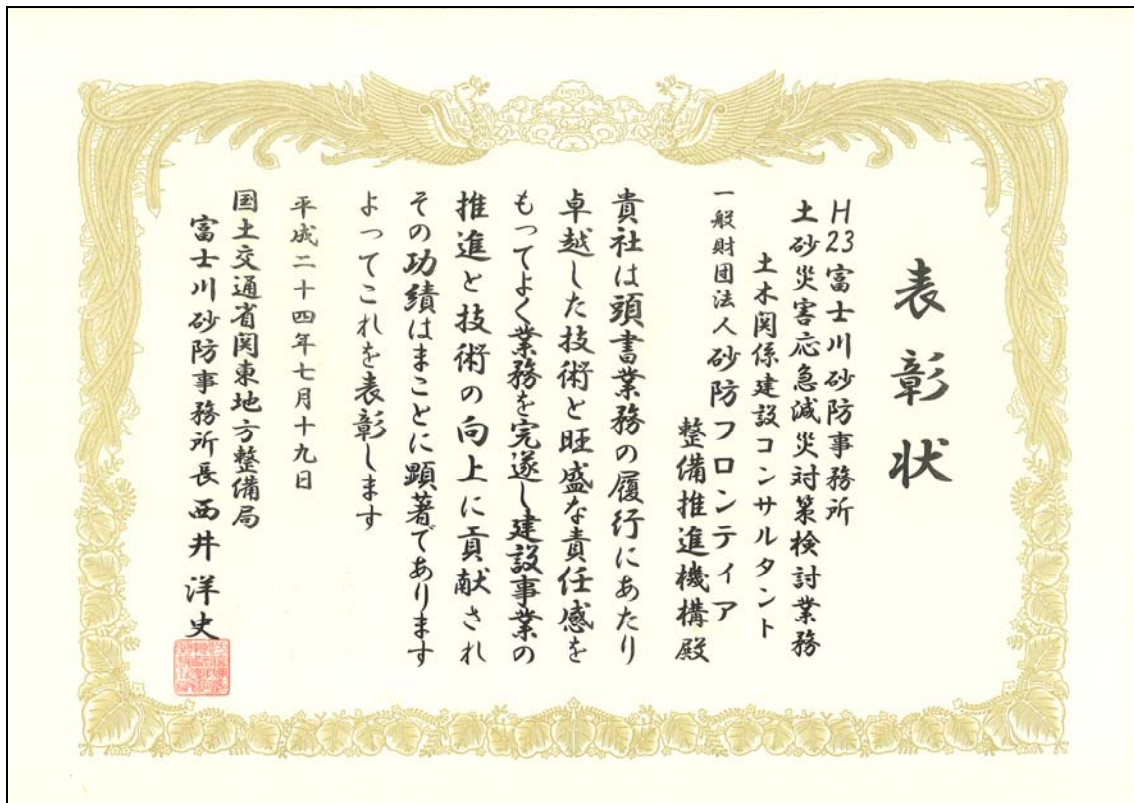 表彰状
H23富士川砂防事務所
土砂災害応急減災対策検討業務
土木関係建設コンサルタント
一般財団法人砂防フロンティア
整備推進機構殿
貴社は頭書業務の履行にあたり
卓越した技術と旺盛な責任感を
もってよく業務を完遂し建設事業の
推進と技術の向上に貢献され
その功績はまことに顕著であります
よってこれを表彰します
平成二十四年七月十九日
国土交通省関東地方整備局
富士川砂防事務所長西井洋史